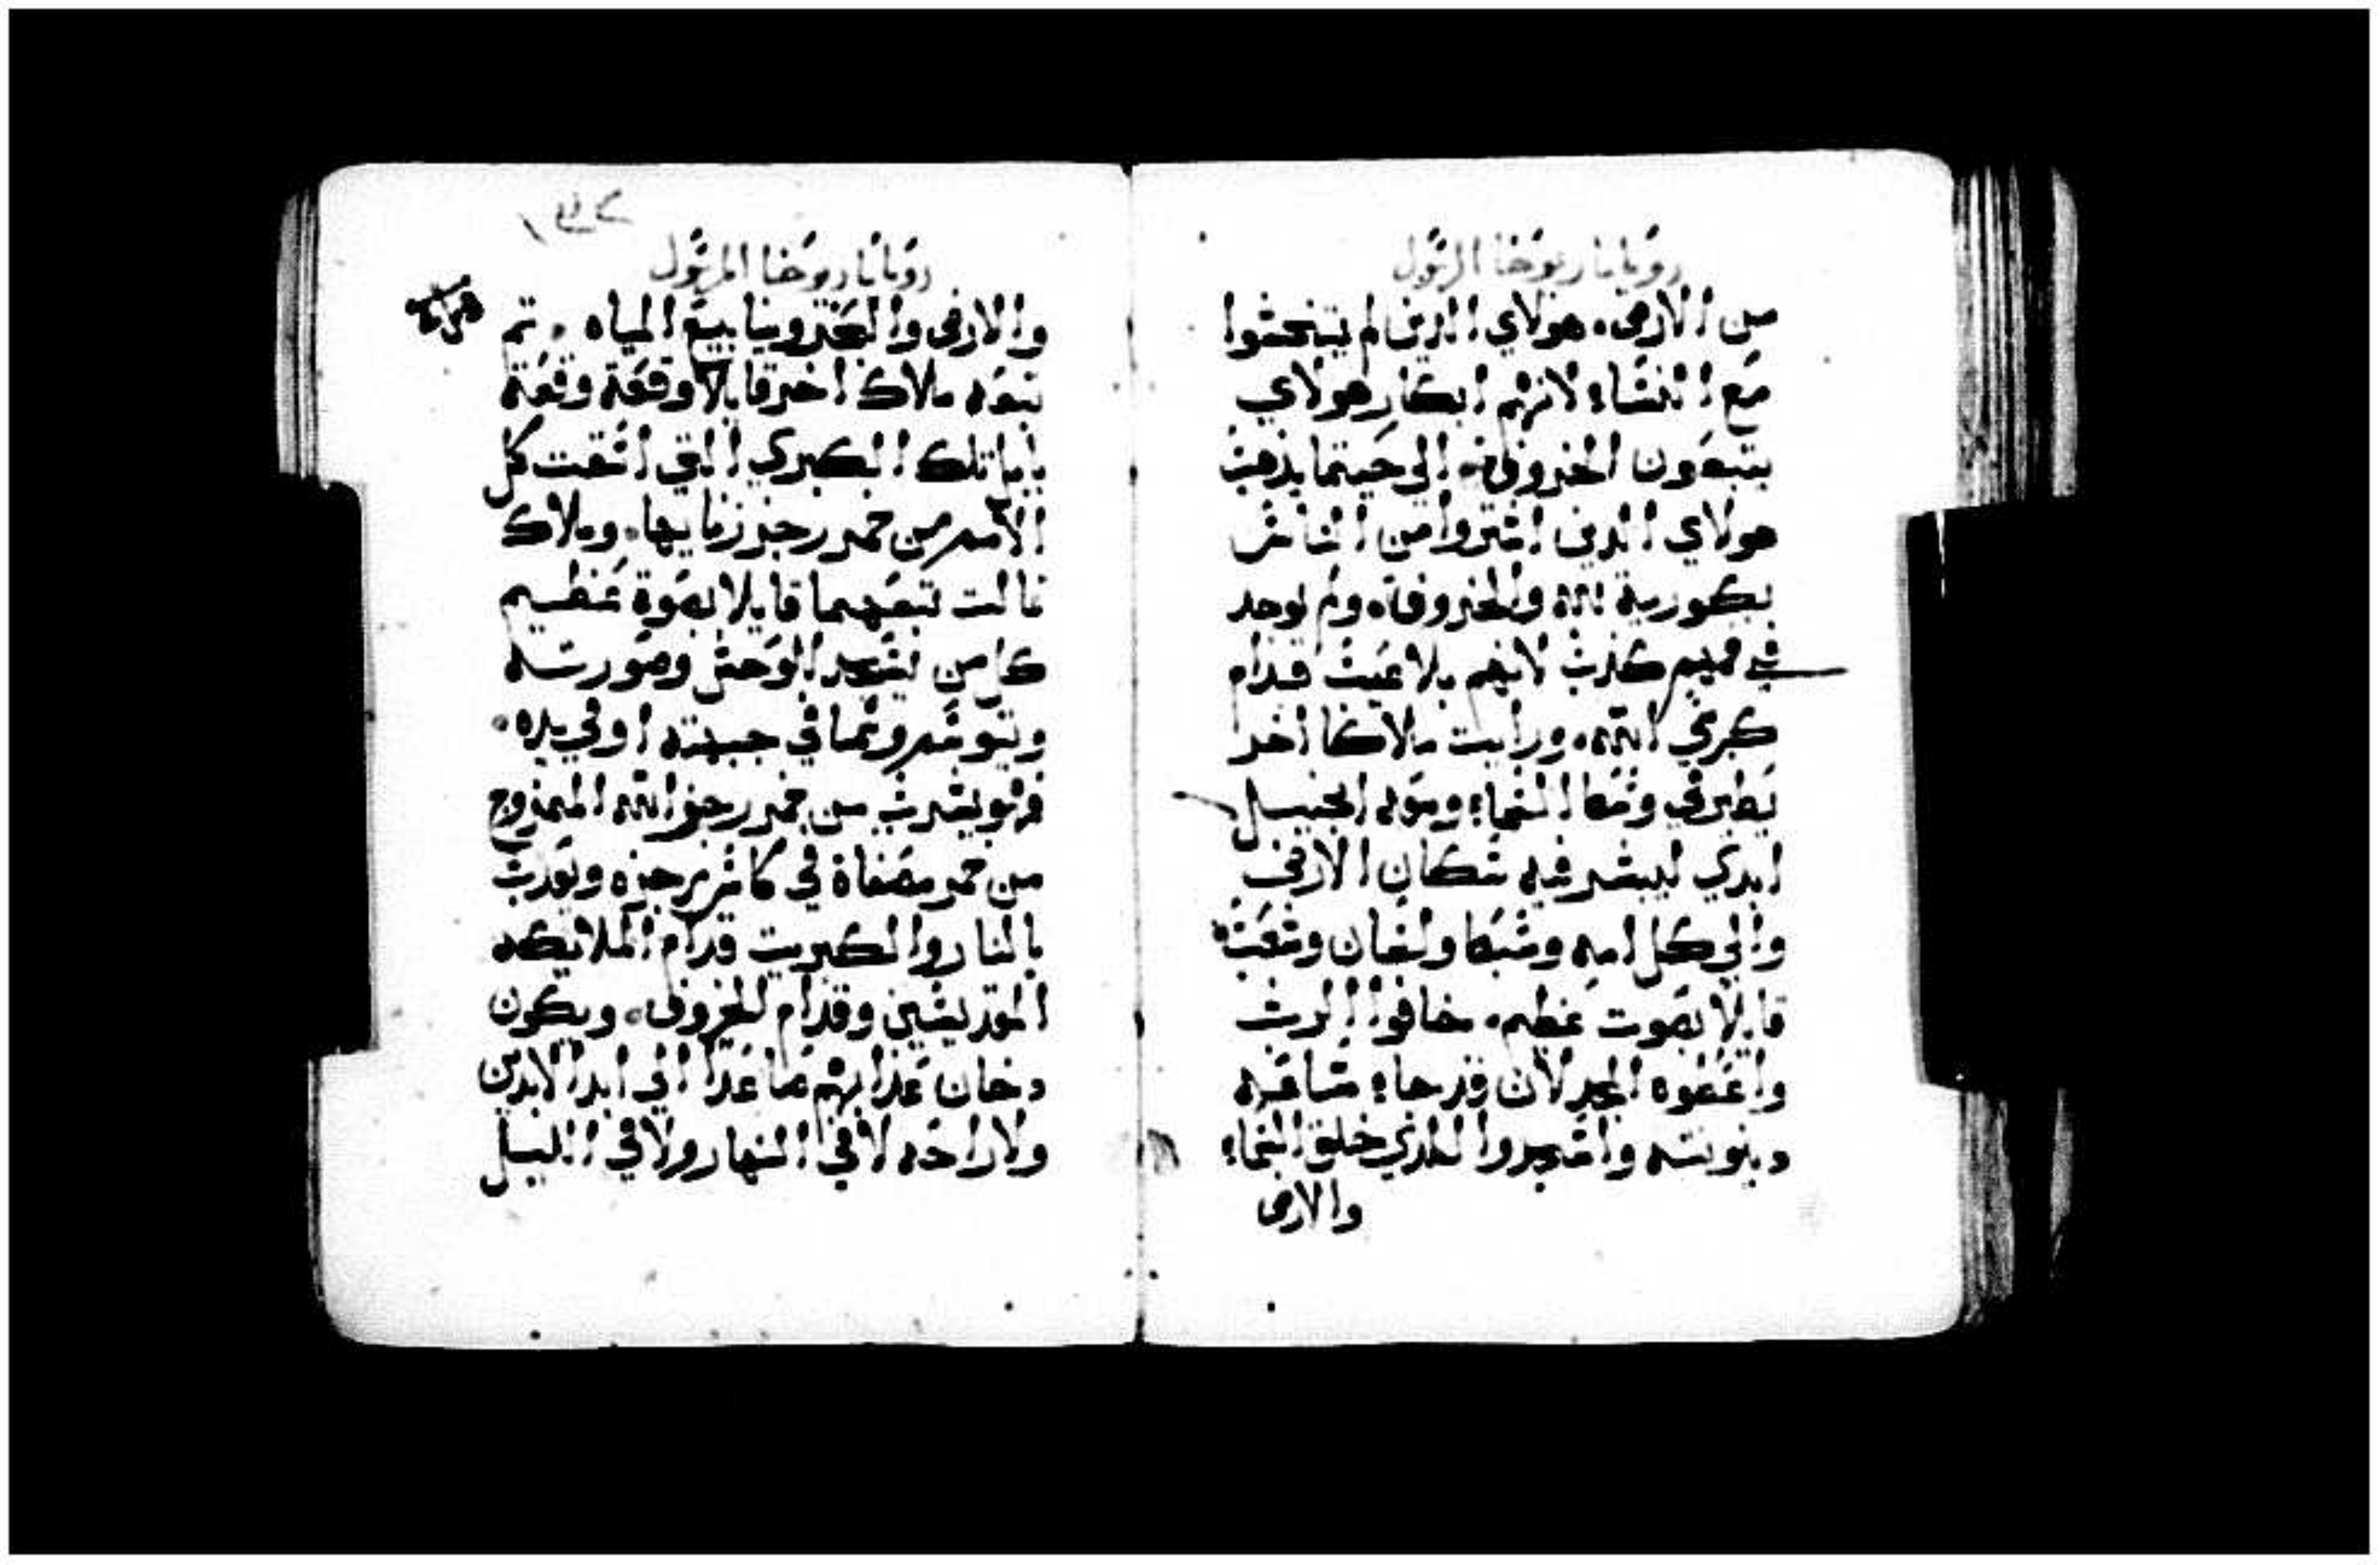 رويا ماريوحنا الرسول
من الارض. هولاي الدين لم يتنجسوا
مع النساء لانهم ابكار هولاي
يتبعون الخروف. الي حيتما يذهب
هولاي الدين اشتروا من الناس
بكورية لله والخروف. ولم يوجد
في فمهم كذب لانهم بلا عيب قدام
كرسي الله. ورايت ملاكا اخر
يطير في وسط السماء ومعه انجيل
ابدي ليبشر فيه سكان الارض
والي كل امه وسبط ولسان وشعب
قايلا بصوت عظيم. خافوا الرب
واعطوه المجد لان قد جاء ساعه
دينونته واسجدوا للذي خلق السماء
والارض
رويا ماريوحنا الرسول
والارض والبحر وينابيع المياه. تم
تبعه ملاك اخر قايلا وقعة وقعة
بابل تلك الكبري التي اسقت كل
الامم من خمر رجز زنايها. وملاك
تالت تبعهما قايلا بصوة عظيم
كل من يسجد للوحش وصورته
ويتوسم وسما في جبهته او في يده.
فهو يشرب من خمر رجز الله الممزوج
من خمر مصفاة في كاس رجزه ويعدب
بالنار والكبريت قدام الملايكه
القديسين وقدام الخروف. ويكون
دخان عذابهم صاعدا الي ابد الابدين
ولا راحه لا في النهار ولا في الليل